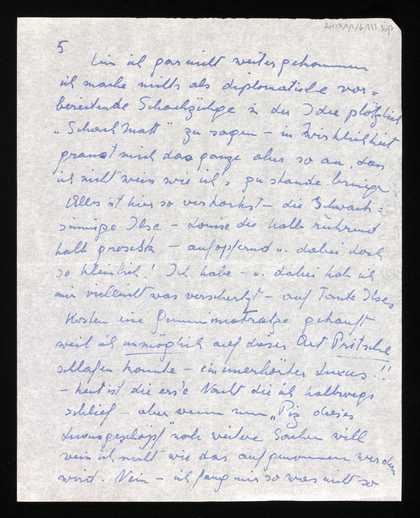 5
bin ich gar nicht weitergekommen
ich mache nichts als diplomatische vor-
bereitende Schachzüge in der Idee plötzlich
„Schach Matt" zu sagen – in Wirklichkeit
graust mich das ganze aber so an, dass
ich nicht weiss wie ich's zu stande bringe
Alles ist hier so verkorkst – die Schwach-
sinnige Ilse – Louise die halb rührend
halb grotesk – aufopfernd u. dabei doch
so kleinlich! Ich habe – u. dabei hab ich
mir vielleicht was verscherzt – auf Tante Ilses
Kosten eine Gummimatratze gekauft
weil ich unmöglich auf dieser Art Pritsche
schlafen konnte – ein unerhörter Luxus!!
– heut ist die erste Nacht die ich halbwegs
schlief – aber wenn nun „ dieses
Luxusgeschöpf" noch weitere Sachen will
weiss ich nicht wie das aufgenommen werden
wird. Nein – ich fang nur so was nicht so